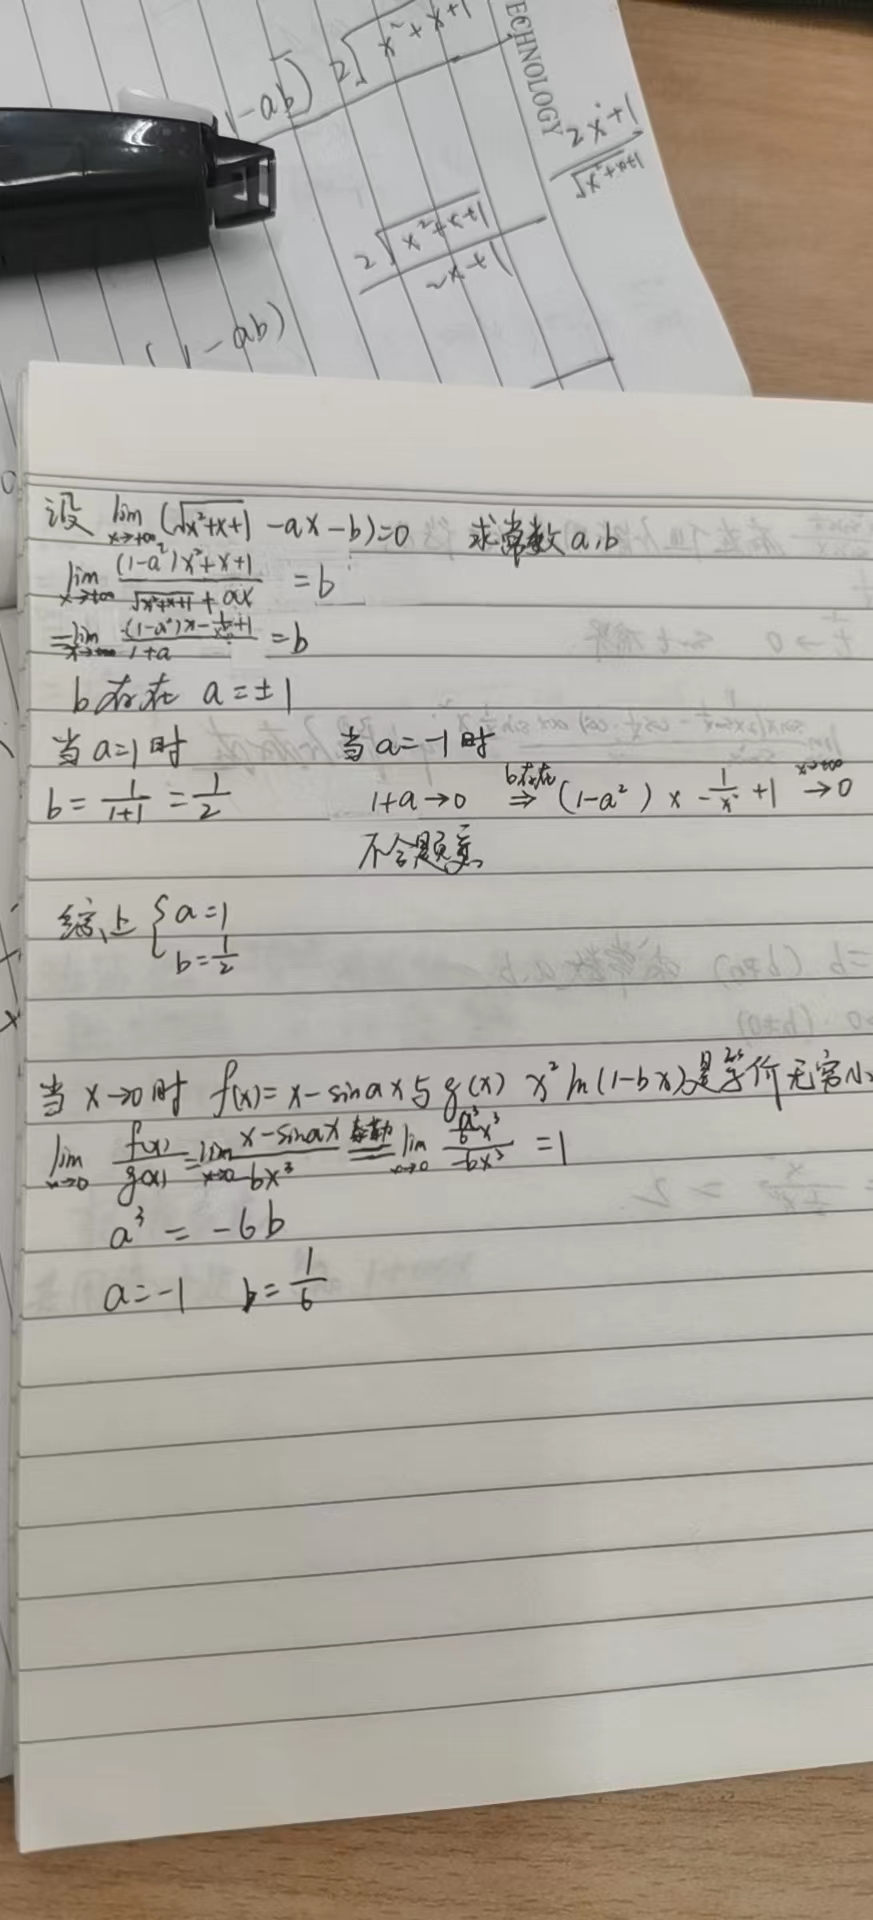 -ab) 2√(x²+x+1)
ECHNOLOGY
2x+1 / √(x²+x+1)
2√(x²+x+1) / 2x+1
(1-ab)
设 lim x→+∞ (√(x²+x+1) -ax-b)=0 求常数a,b
lim x→+∞ ((1-a²)x²+x+1) / (√(x²+x+1)+ax) = b
=lim x→+∞ ((1-a²)x-1/x²+1) / (1+a) = b
b存在 a=±1
当a=1时 当a=-1时
b= 1/(1+1) = 1/2 1+a→0 b存在 ⇒ (1-a²)x-1/x²+1 x→+∞ →0
不合题意
综上 { a=1
b=1/2
当x→0时 f(x)=x-sinax与g(x) x²ln(1-bx)是等价无穷小
lim x→0 f(x)/g(x) = lim x→0 (x-sinax)/(-bx³) = lim x→0 (a³/6 x³)/(-bx³) =1
a³ = -6b
a=-1 b=1/6